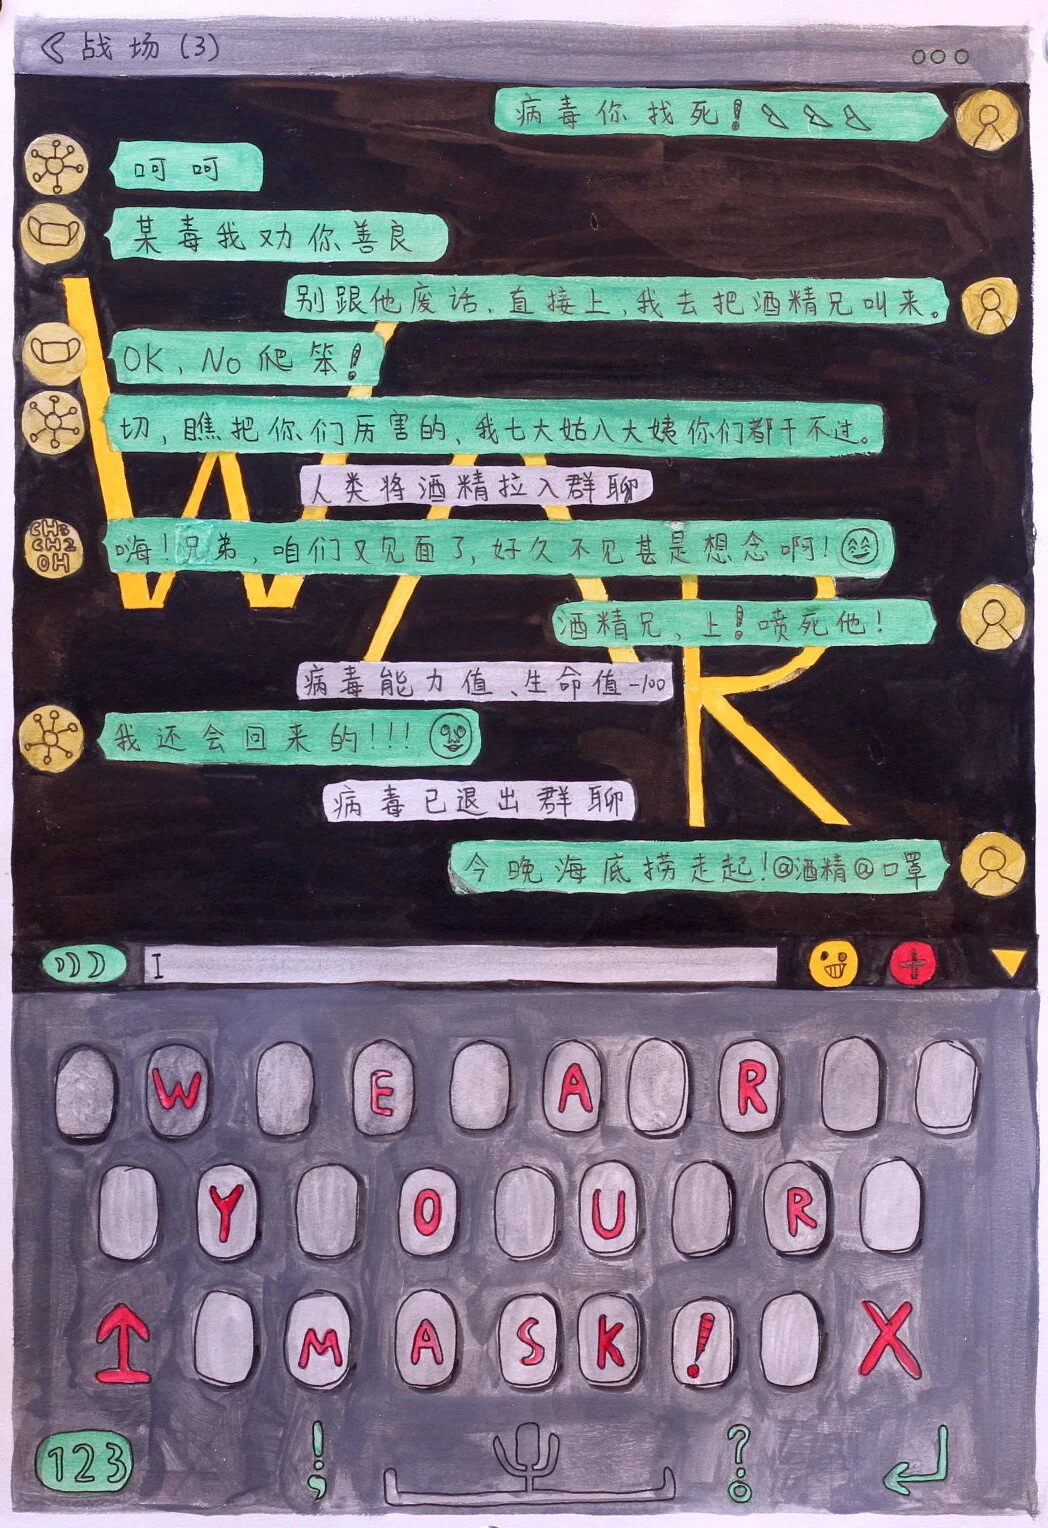 战场(3)
病毒你找死!
呵呵
某毒我劝你善良
别跟他废话、直接上、我去把酒精兄叫来。
OK,No爬笨!
切,瞧把你们厉害的、我七大姑八大姨你们都干不过。
人类将酒精拉入群聊
CH3
CH2
OH
嗨!兄弟,咱们又见面了,好久不见甚是想念啊!
酒精兄、上!喷死他!
病毒能力值、生命值-100
我还会回来的!!!
病毒已退出群聊
今晚海底捞走起!@酒精@口罩
WAR
I
W E A R
Y O U R
M A S K ! X
123 ! ; ?